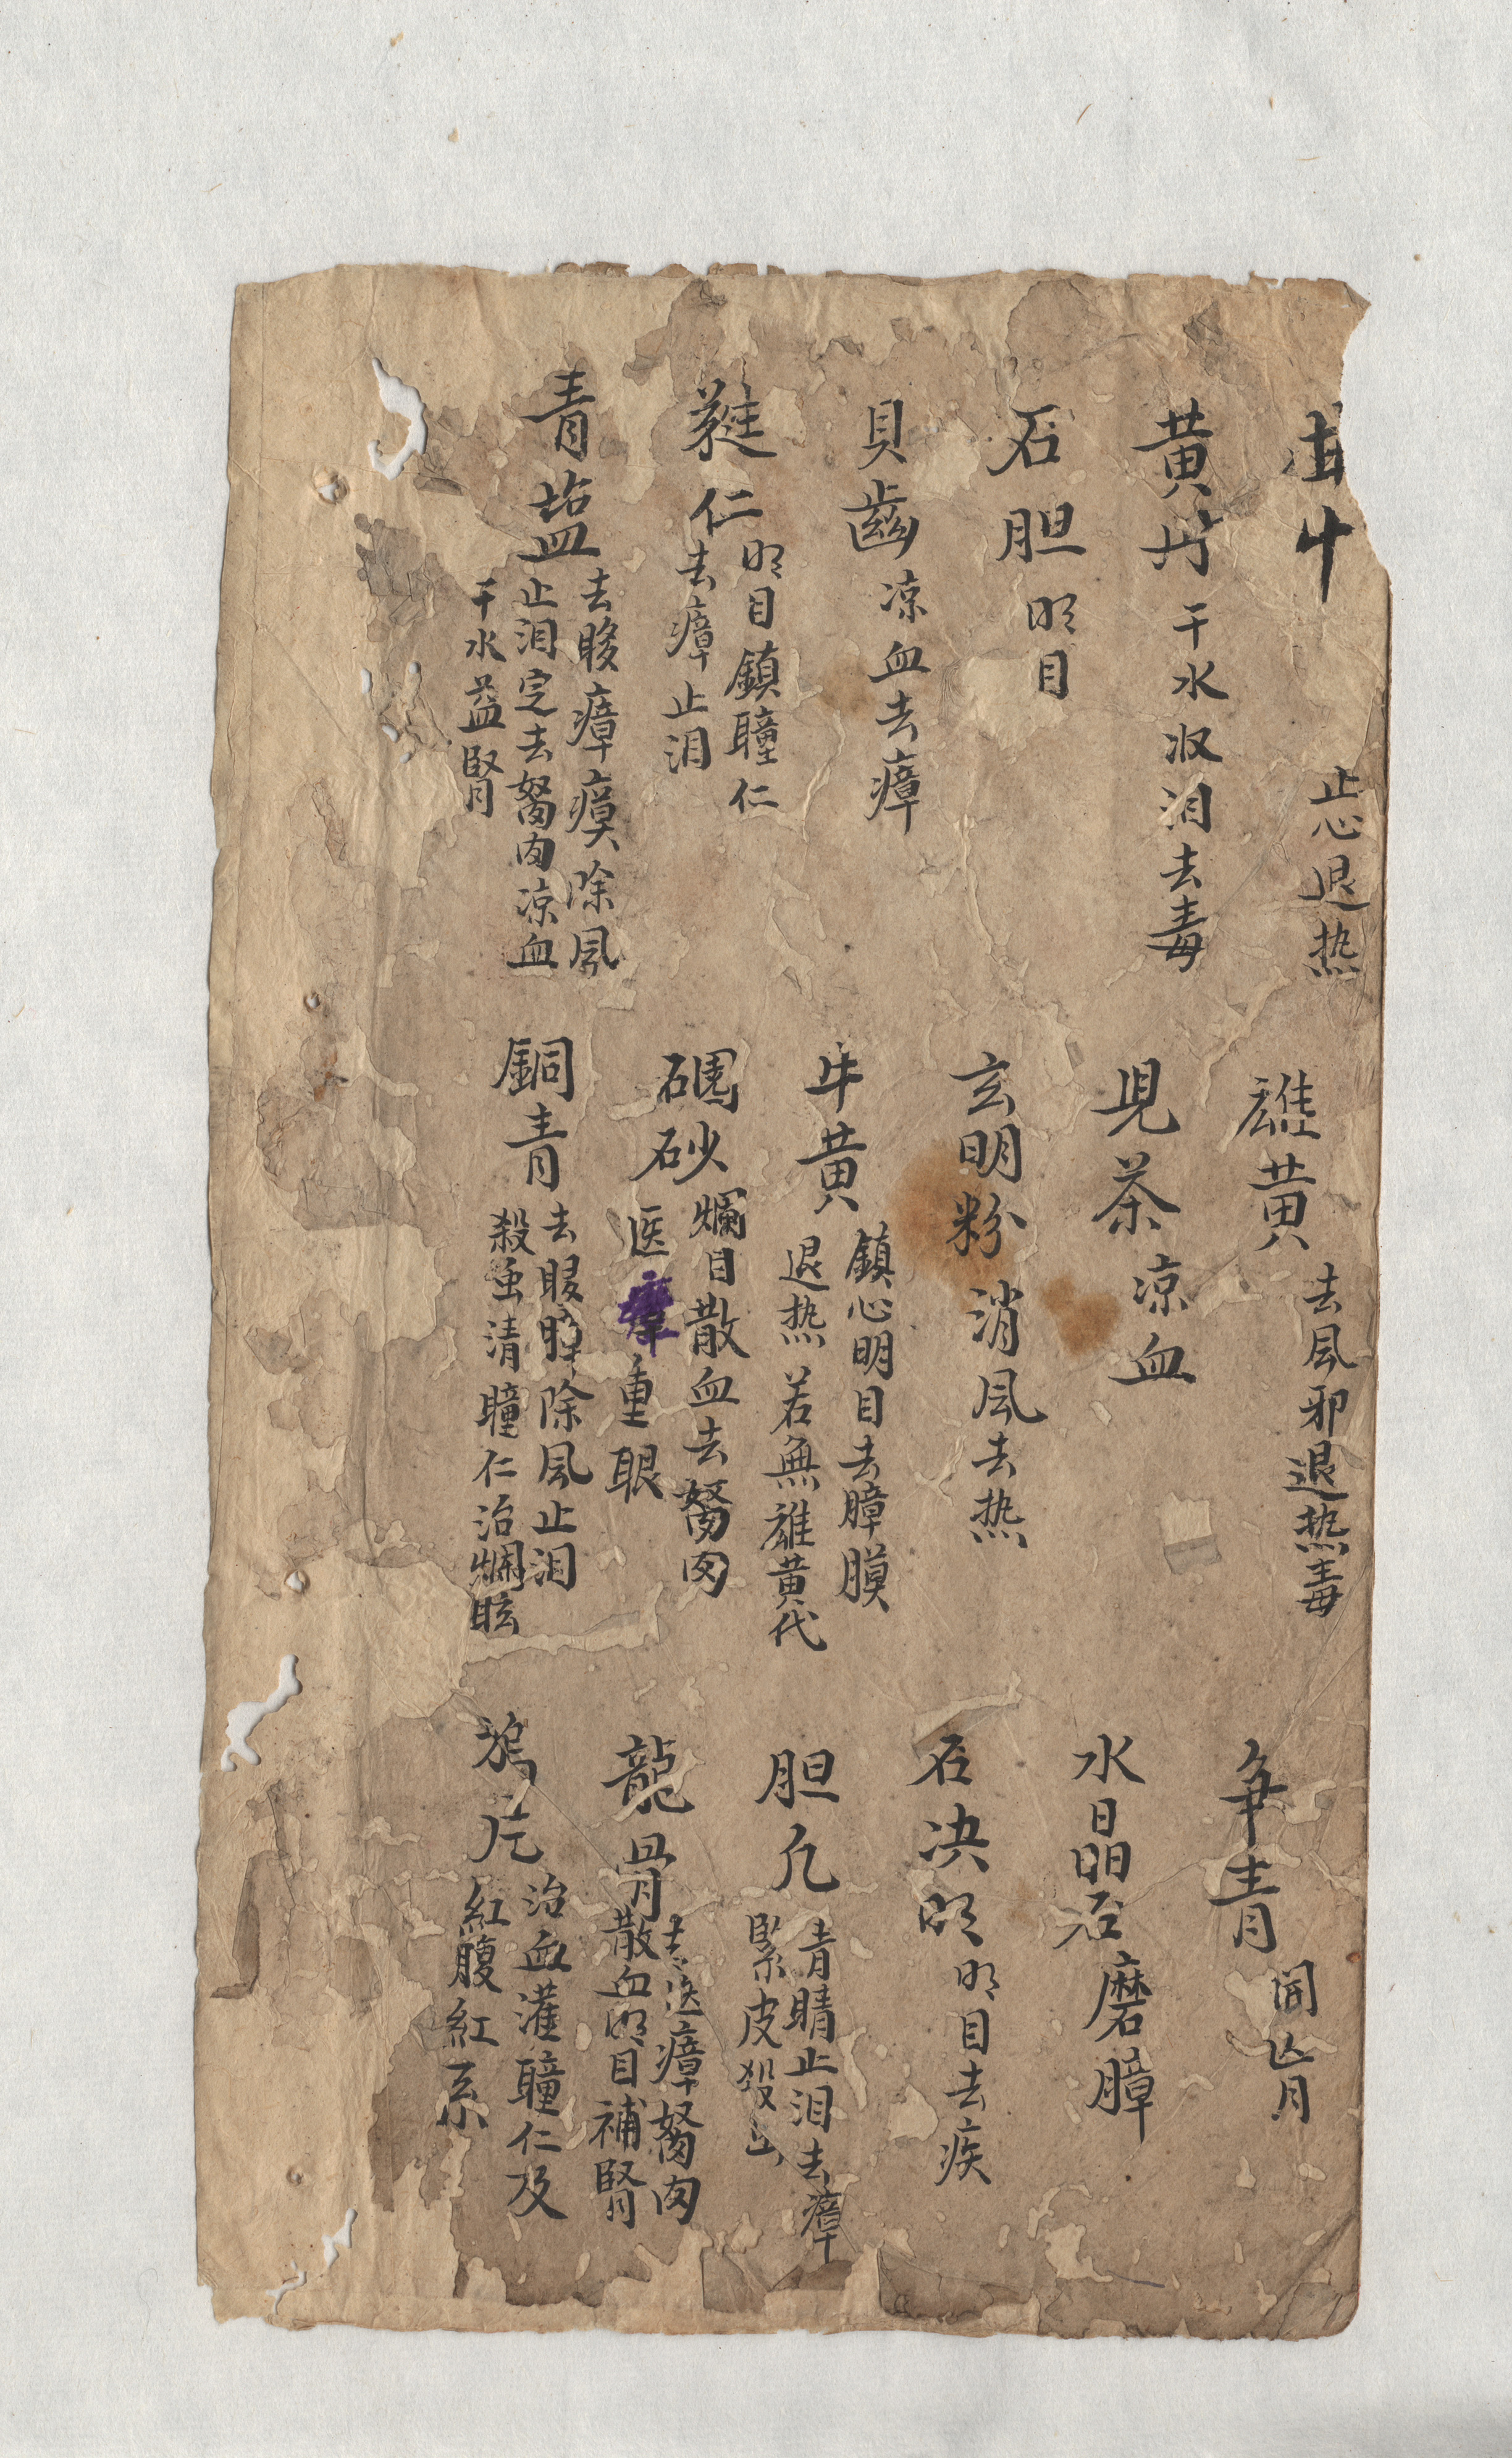 止心退热
黄丹 干水収泪去毒
石胆 明目
貝齒 凉血去瘴
蕤仁 明目鎮瞳仁
去瘴止泪
青塩 去瞍瘴瘼除風
止泪定去努肉凉血
干水益腎
雄黄 去風邪退热毒
児茶 凉血
玄明粉 消風去热
牛黄 鎮心明目去瞕膜
退热 若無雄黄代
砂 爛目散血去努肉
医瘴重眼
銅青 去瞕除風止泪
殺虫清瞳仁治爛眩
争青
水晶石 磨瞕
石决明 明目去疾
胆凡 青睛止泪去瘴
緊皮殺虫
龍骨 去医瘴努肉
散血明目補腎
鴉片 治血灌瞳仁及
紅腹紅系